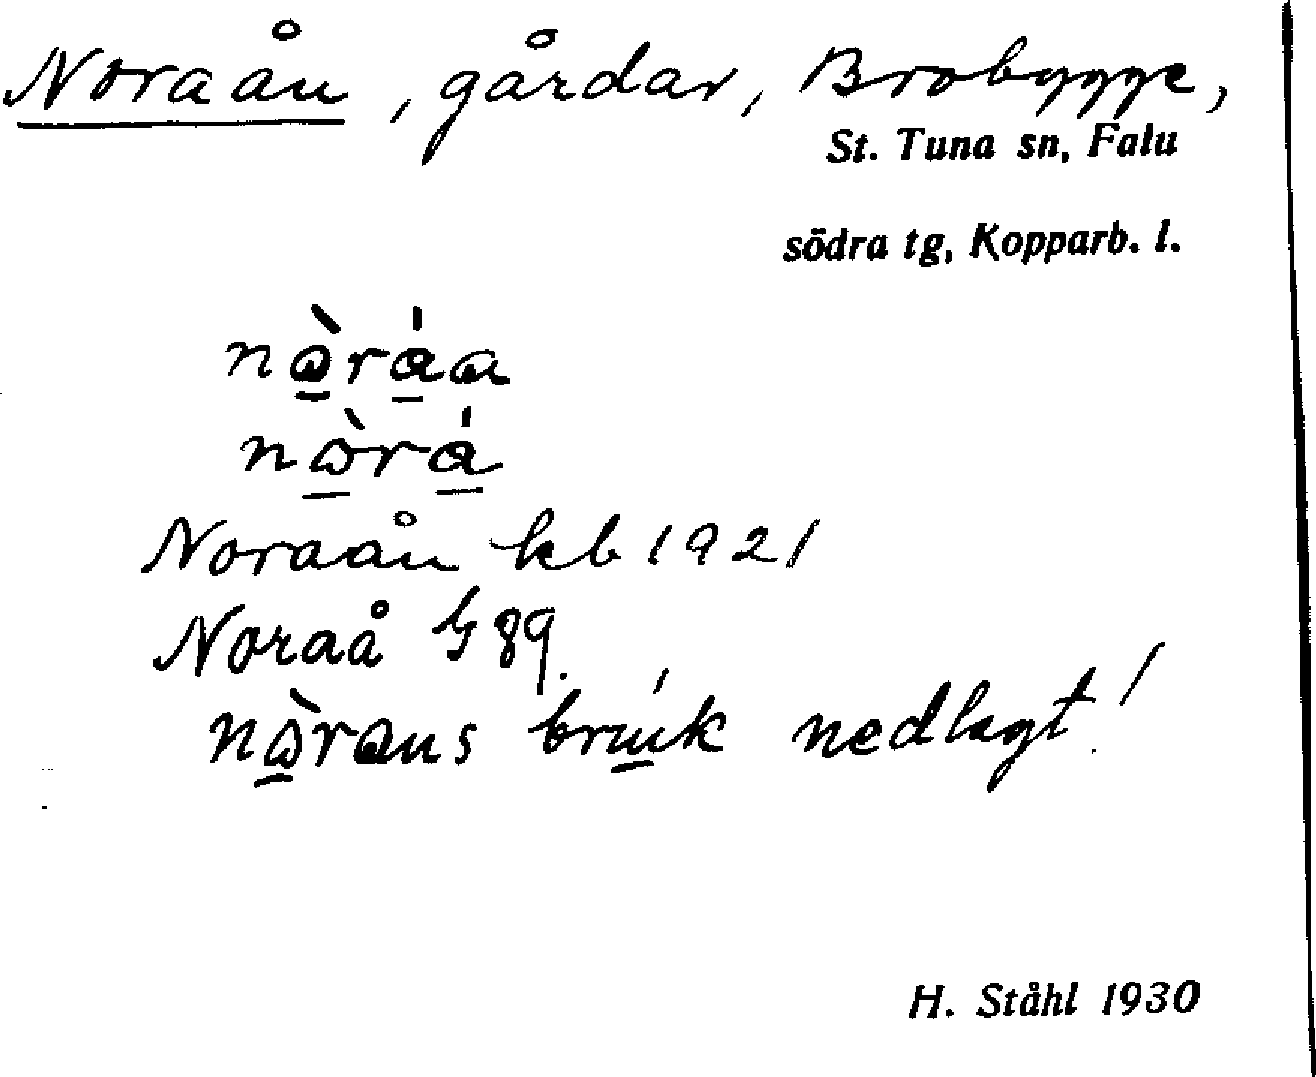 Noraån, gårdar, Brobygge,
St. Tuna sn, Falu
södra tg, Kopparb. l.
Noraån kb 1921
Noraå G 89.
nedlagt!
H. Ståhl 1930